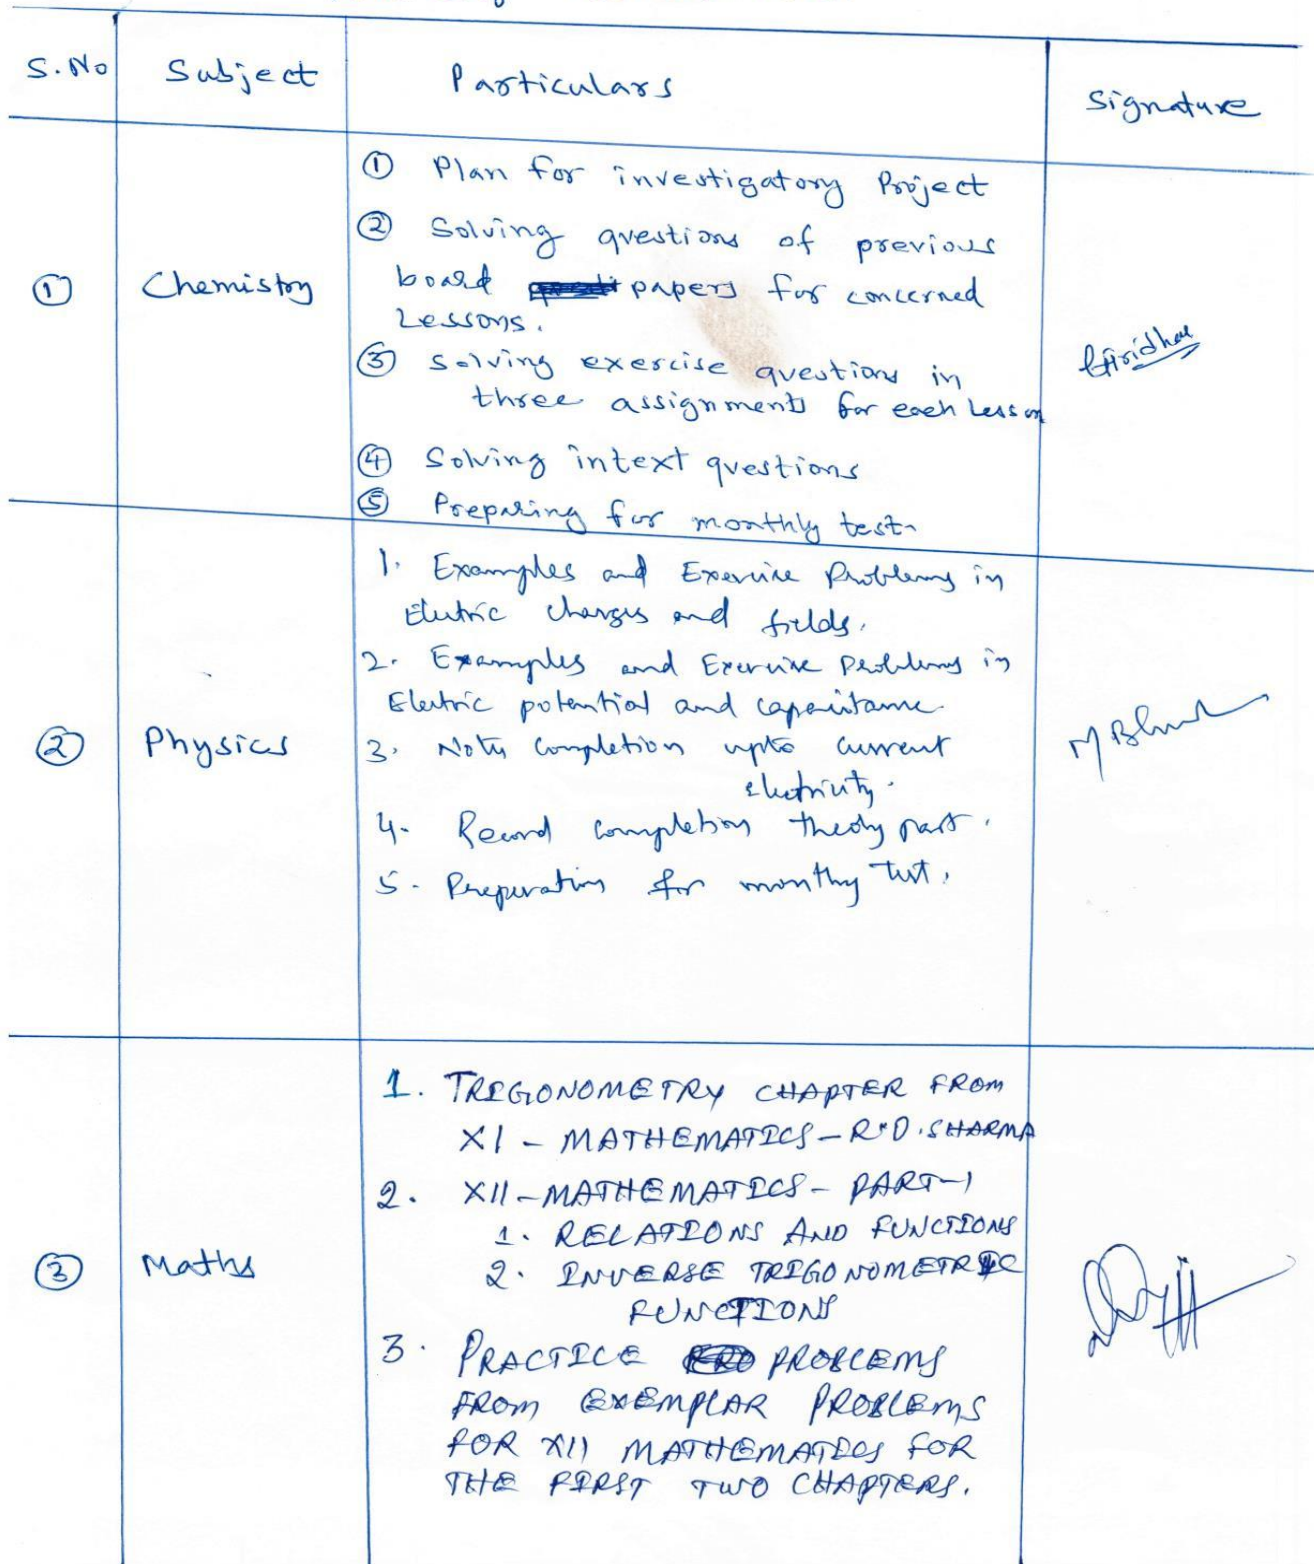 S.No Subject Particulars Signature
① Chemistry
① Plan for investigatory Project
② Solving questions of previous
board papers for concerned
Lessons.
③ Solving exercise questions in
three assignments for each Lesson
④ Solving intext questions
⑤ Preparing for monthly test.
Giridhar
② Physics
1. Examples and Exercise Problems in
Electric charges and fields.
2. Examples and Exercise Problems in
Electric potential and capacitance.
3. Notes completion upto current
electricity.
4. Record completion theory part.
5. Preparation for monthy test.
③ Maths
1. TRIGONOMETRY CHAPTER FROM
XI - MATHEMATICS - R.D. SHARMA
2. XII - MATHEMATICS - PART-I
1. RELATIONS AND FUNCTIONS
2. INVERSE TRIGONOMETRIC
FUNCTIONS
3. PRACTICE PROBLEMS
FROM EXEMPLAR PROBLEMS
FOR XII MATHEMATICS FOR
THE FIRST TWO CHAPTERS.